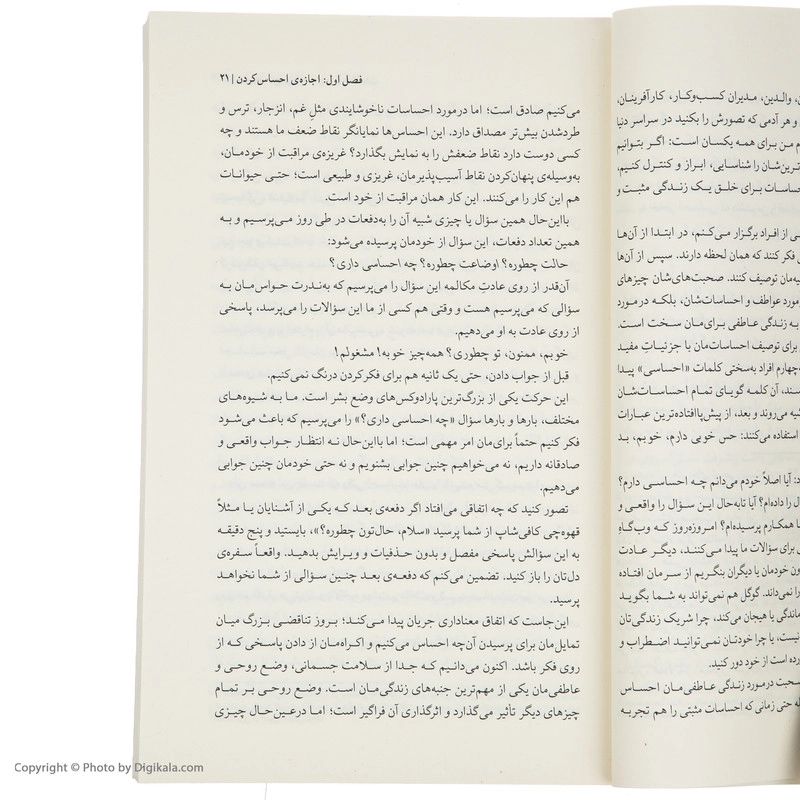 ن، والدین، مدیران کسب‌وکار، کارآفرینان،
و هر آدمی که تصورش را بکنید در سراسر دنیا
م من برای همه یکسان است: اگر بتوانیم
ترین‌شان را شناسایی، ابراز و کنترل کنیم،
حساسات برای خلق یک زندگی مثبت و
ی از افراد برگزار می‌کنم، در ابتدا از آن‌ها
فکر کنند که همان لحظه دارند. سپس از آن‌ها
یه‌مان توصیف کنند. صحبت‌های‌شان چیزهای
مورد عواطف و احساسات‌شان، بلکه درمورد
به زندگی عاطفی برای‌مان سخت است.
برای توصیف احساسات‌مان با جزئیاتِ مفید
چهارم افراد به‌سختی کلمات «احساسی» پیدا
سند، آن کلمه گویای تمام احساسات‌شان
شیه می‌روند و بعد، از پیش‌پاافتاده‌ترین عبارات
استفاده می‌کنند: حس خوبی دارم، خوبم، بد
د: آیا اصلاً خودم می‌دانم چه احساسی دارم؟
ل را داده‌ام؟ آیا تابه‌حال این سؤال را واقعی و
ا همکارم پرسیده‌ام؟ امروزه‌روز که وب‌گاهِ
برای سؤالات ما پیدا می‌کنند، دیگر عادت
ون خودمان یا دیگران بنگریم از سرمان افتاده
را نمی‌داند. گوگل هم نمی‌تواند به شما بگوید
ماندگی یا هیجان می‌کند، چرا شریک زندگی‌تان
نیست، یا چرا خودتان نمی‌توانید اضطراب و
رده است از خود دور کنید.
صحبت درمورد زندگی عاطفی‌مان احساس
له حتی زمانی که احساسات مثبتی را هم تجربه
فصل اول: اجازه‌ی احساس‌کردن | ۲۱
می‌کنیم صادق است؛ اما درمورد احساسات ناخوشایندی مثلِ غم، انزجار، ترس و
طردشدن بیش‌تر مصداق دارد. این احساس‌ها نمایانگر نقاط ضعف ما هستند و چه
کسی دوست دارد نقاط ضعفش را به نمایش بگذارد؟ غریزه‌ی مراقبت از خودمان،
به‌وسیله‌ی پنهان‌کردن نقاط آسیب‌پذیرمان، غریزی و طبیعی است؛ حتی حیوانات
هم این کار را می‌کنند. این کار همان مراقبت از خود است.
بااین‌حال همین سؤال یا چیزی شبیه آن را به‌دفعات در طی روز می‌پرسیم و به
همین تعداد دفعات، این سؤال از خودمان پرسیده می‌شود:
حالت چطوره؟ اوضاعت چطوره؟ چه احساسی داری؟
آن‌قدر از روی عادتِ مکالمه این سؤال را می‌پرسیم که به‌ندرت حواس‌مان به
سؤالی که می‌پرسیم هست و وقتی هم کسی از ما این سؤالات را می‌پرسد، پاسخی
از روی عادت به او می‌دهیم.
خوبم، ممنون، تو چطوری؟ همه‌چیز خوبه! مشغولم!
قبل از جواب دادن، حتی یک ثانیه هم برای فکرکردن درنگ نمی‌کنیم.
این حرکت یکی از بزرگ‌ترین پارادوکس‌های وضع بشر است. ما به شیوه‌های
مختلف، بارها و بارها سؤال «چه احساسی داری؟» را می‌پرسیم که باعث می‌شود
فکر کنیم حتماً برای‌مان امر مهمی است؛ اما بااین‌حال نه انتظار جواب واقعی و
صادقانه داریم، نه می‌خواهیم چنین جوابی بشنویم و نه حتی خودمان چنین جوابی
می‌دهیم.
تصور کنید که چه اتفاقی می‌افتاد اگر دفعه‌ی بعد که یکی از آشنایان یا مثلاً
قهوه‌چی کافی‌شاپ از شما پرسید «سلام، حال‌تون چطوره؟»، بایستید و پنج دقیقه
به این سؤالش پاسخی مفصل و بدون حذفیات و ویرایش بدهید. واقعاً سفره‌ی
دل‌تان را باز کنید. تضمین می‌کنم که دفعه‌ی بعد چنین سؤالی از شما نخواهد
پرسید.
این‌جاست که اتفاق معناداری جریان پیدا می‌کند؛ بروز تناقضی بزرگ میان
تمایل‌مان برای پرسیدن آن‌چه احساس می‌کنیم و اکراه‌مان از دادن پاسخی که از
روی فکر باشد. اکنون می‌دانیم که جدا از سلامت جسمانی، وضع روحی و
عاطفی‌مان یکی از مهم‌ترین جنبه‌های زندگی‌مان است. وضع روحی بر تمام
چیزهای دیگر تأثیر می‌گذارد و اثرگذاری آن فراگیر است؛ اما درعین‌حال چیزی
Copyright © Photo by Digikala.com